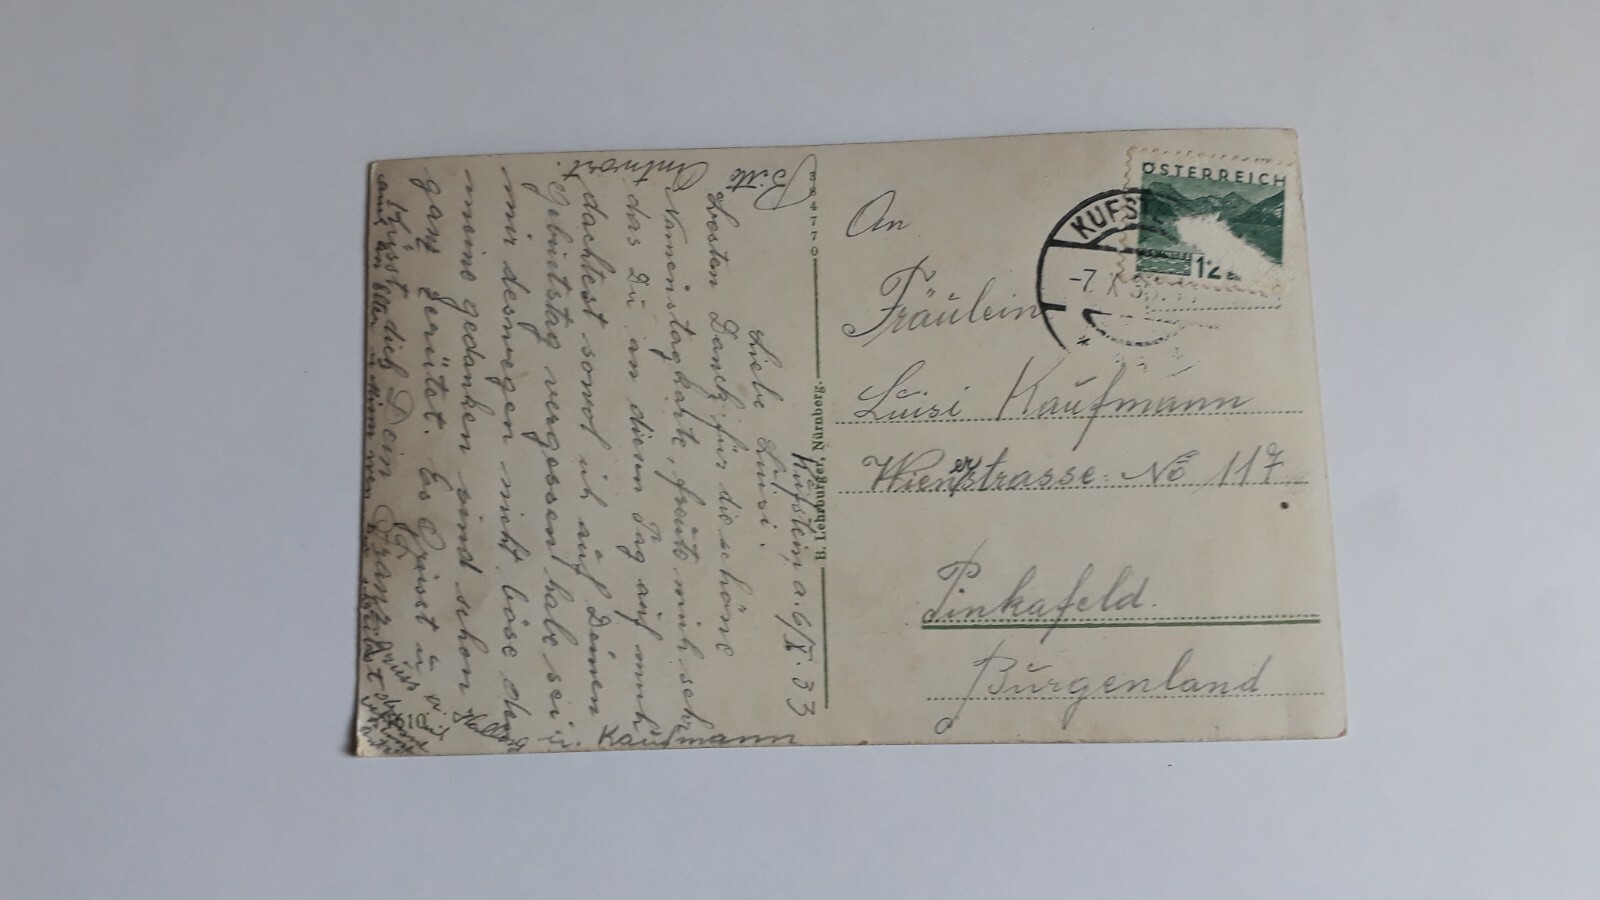 Kufstein, a. 6/X. 33
Liebe Luisi.
Besten Danck für die schöne
Namenstagkarte, freute mich sehr
das Du an diesen Tag auf mich
dachtest sowol ich auf Deinen
Gebutstag vergessen habe sei
mir deswegen nicht böse den
meine gedanken sind schon
ganz zerütet. Es Grüsst u.
Küsst dich Dein Franz
Bitte
Antwort.
Kaufmann
3 2 4 7 7 0
B. Lehrburger, Nürnberg.
ÖSTERREICH
12
KUFS
-7. X
An
Fräulein
Luisi Kaufmann
Wienerstrasse No 117
Pinkafeld.
Burgenland